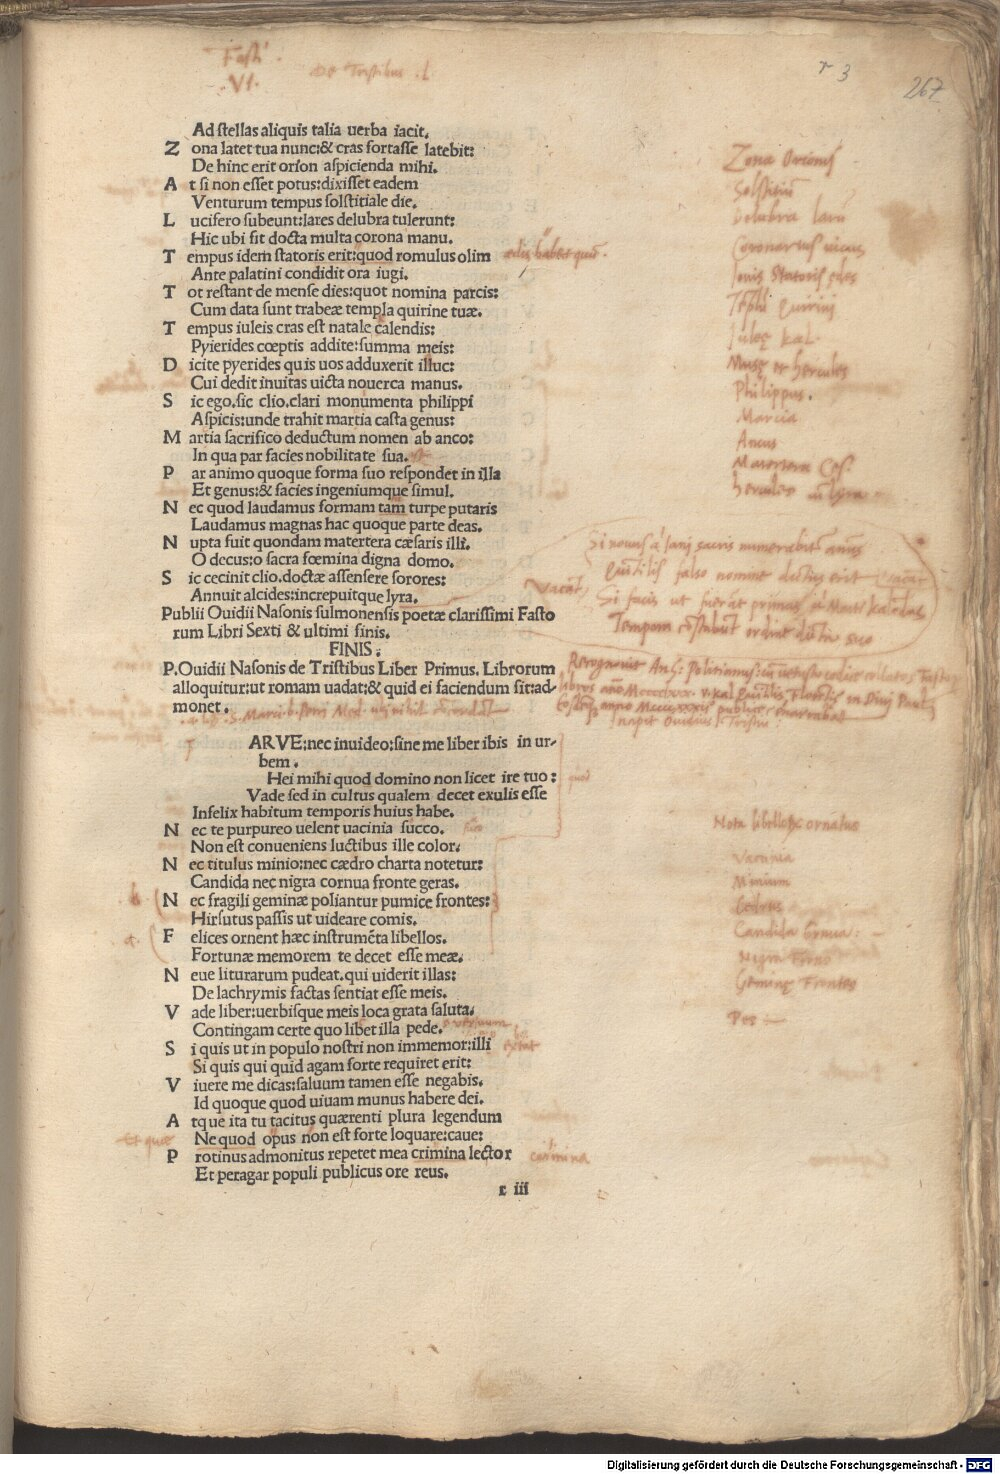 Fasti
.VI.
De Tristibus .I.
r 3
267
Ad stellas aliquis talia uerba iacit.
Z ona latet tua nunc:& cras fortasse latebit:
De hinc erit orion aspicienda mihi.
A t si non esset potus:dixisset eadem
Venturum tempus solstitiale die.
L ucifero subeunt:lares delubra tulerunt:
Hic ubi fit docta multa corona manu.
T empus idem statoris erit:quod romulus olim
Ante palatini condidit ora iugi.
T ot restant de mense dies:quot nomina parcis:
Cum data sunt trabeæ templa quirine tuæ.
T empus iuleis cras est natale calendis:
Pyierides cœptis addite:summa meis:
D icite pyerides quis uos adduxerit illuc:
Cui dedit inuitas uicta nouerca manus.
S ic ego.sic clio.clari monumenta philippi
Aspicis:unde trahit martia casta genus:
M artia sacrifico deductum nomen ab anco:
In qua par facies nobilitate sua.
P ar animo quoque forma suo respondet in illa
Et genus:& facies ingeniumque simul.
N ec quod laudamus formam tam turpe putaris
Laudamus magnas hac quoque parte deas.
N upta fuit quondam matertera cæsaris illi.
O decus:o sacra fœmina digna domo.
S ic cecinit clio.doctæ assensere sorores:
Annuit alcides:increpuitque lyra.
Publii Ouidii Nasonis sulmonensis poetæ clarissimi Fasto
rum Libri Sexti & ultimi finis.
FINIS.
P.Ouidii Nasonis de Tristibus Liber Primus. Librorum
alloquitur:ut romam uadat:& quid ei faciendum sit:ad-
monet.
ARVE:nec inuideo:sine me liber ibis in ur-
bem.
Hei mihi quod domino non licet ire tuo:
Vade sed in cultus qualem decet exulis esse
Infelix habitum temporis huius habe.
N ec te purpureo uelent uacinia succo.
Non est conueniens luctibus ille color.
N ec titulus minio:nec cædro charta notetur:
Candida nec nigra cornua fronte geras.
N ec fragili geminæ poliantur pumice frontes:
Hirsutus passis ut uideare comis.
F elices ornent hæc instrumēta libellos.
Fortunæ memorem te decet esse meæ.
N eue liturarum pudeat.qui uiderit illas:
De lachrymis factas sentiat esse meis.
V ade liber:uerbisque meis loca grata saluta.
Contingam certe quo libet illa pede.
S i quis ut in populo nostri non immemor:illi
Si quis qui quid agam forte requiret erit:
V iuere me dicas:saluum tamen esse negabis.
Id quoque quod uiuam munus habere dei.
A tque ita tu tacitus quærenti plura legendum
Ne quod opus non est forte loquare:caue:
P rotinus admonitus repetet mea crimina lector
Et peragar populi publicus ore reus.
r iii
Zona Orionis
Solstitiū
delubra larū
Coronarius uicus
Iouis Statoris ędes
Tēpli Quirini
Iulęę kal.
Musę et hercules
Philippus.
Marcia
Ancus
Matertera Cęs.
hercules cū lyra
Si nouus a Iani sacris numerabitur annus
Quītilis falso nomine dictus erit
Si facis ut fuerāt primas a Marti kalēdas
Tempora cōstabunt ordine ducta suo
Vacāt
Recognouit Ang. Politianus
Nota libellorū ornatus
Vacinia
Minium
Cedrus
Candida Cornua:
Nigra Frons
Geminę Frontes
Pes
b.
a.
Et quę
carmina
Digitalisierung gefördert durch die Deutsche Forschungsgemeinschaft - DFG